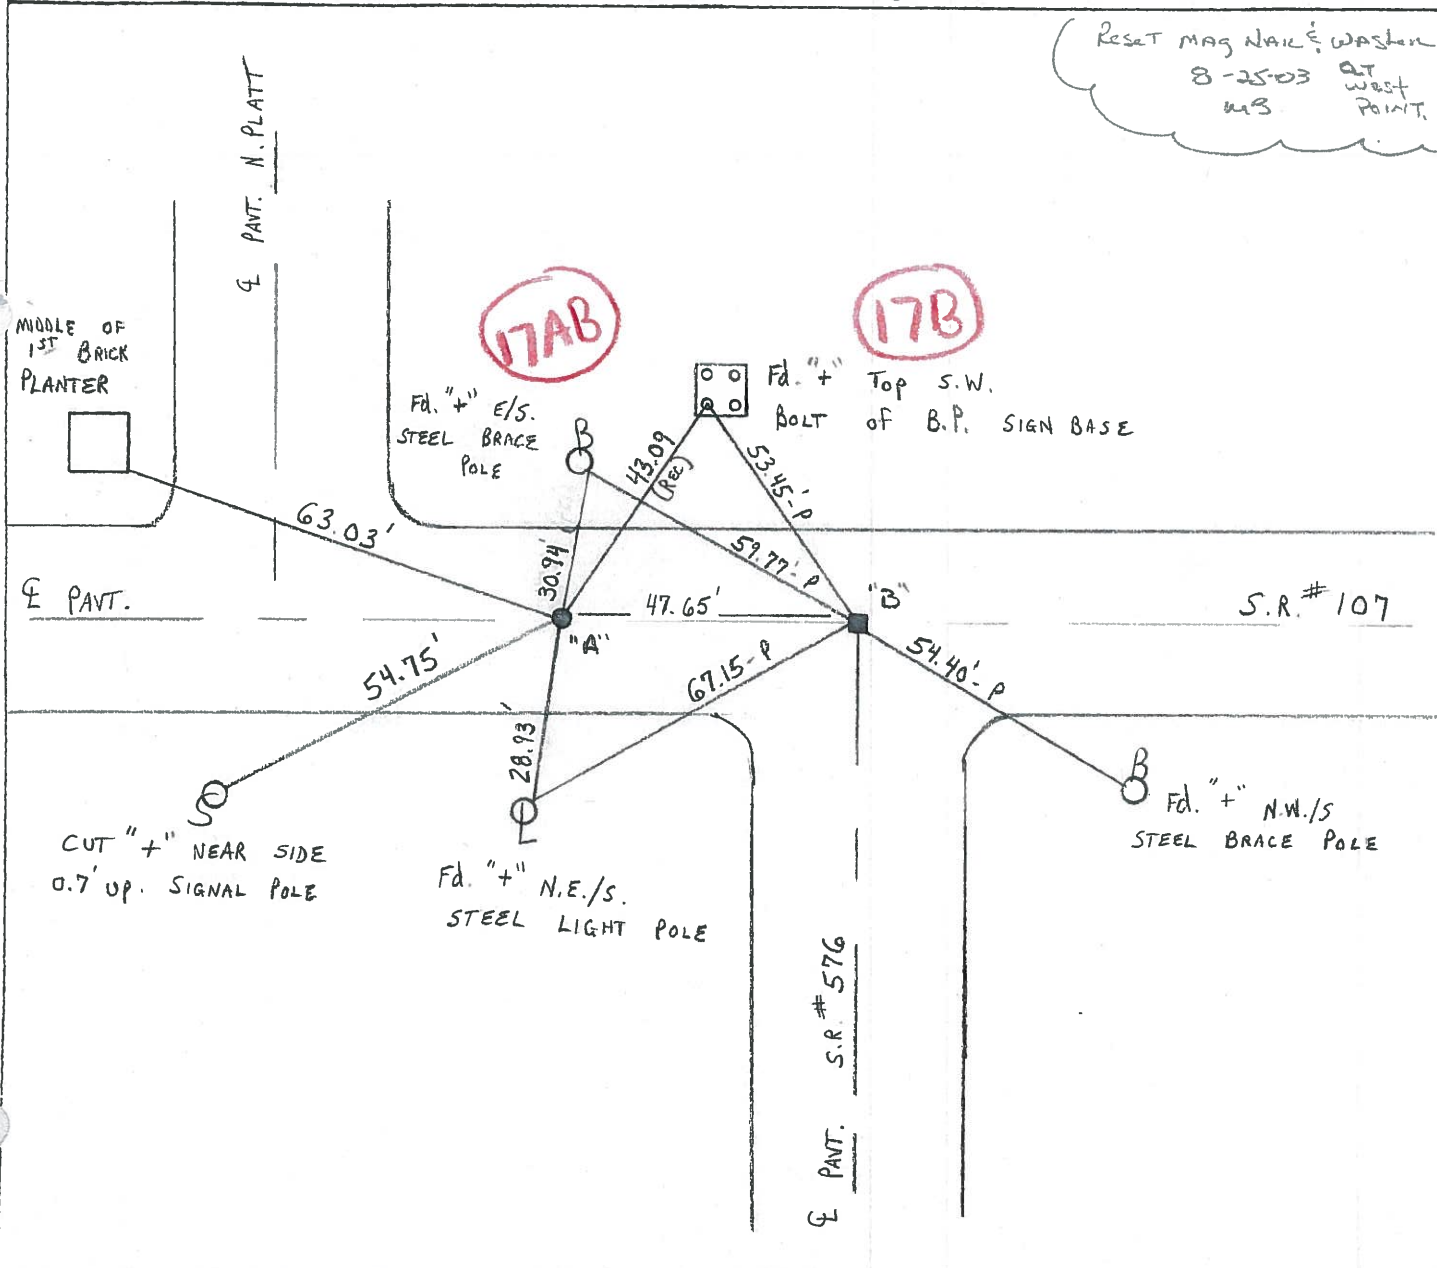 Reset MAG NAIL & WASHER
8-25-03 AT
WEST
MB POINT.
℄ PAVT. N. PLATT
17AB
17B
MIDDLE OF
1ST BRICK
PLANTER
Fd. "+" E/S.
STEEL BRACE
POLE
B
Fd. "+" TOP S.W.
BOLT of B.P. SIGN BASE
43.09
(REC)
53.45'-P
63.03'
30.94'
59.77'-P
℄ PAVT.
47.65'
"A"
"B"
S.R. #107
54.75'
67.15-P
54.40'-P
28.93'
S
CUT "+" NEAR SIDE
0.7' UP. SIGNAL POLE
L
Fd. "+" N.E./S.
STEEL LIGHT POLE
B
Fd. "+" N.W./S
STEEL BRACE POLE
℄ PAVT. S.R. #576